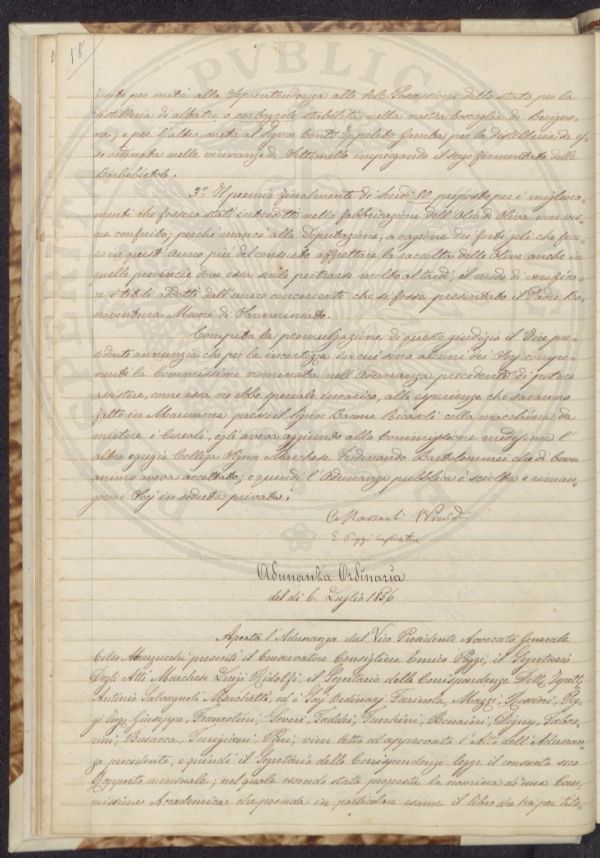 18
PVBLICAE
PROSPERITATI
per metà alla Soprintendenza alle Possessioni dello stato per la
distilleria di albatre o corbezzole stabilita nella nostra boscaglia di
ne; e per l'altra metà al Signor Conte Ippolito Gamba per la distilleria da
se attivata nelle vicinanze di Settimello impiegando il sugo fermentato delle
Barbebietole.
3° Il premio finalmente di scudi 80 proposto per i migliora-
menti che fossero stati introdotti nella fabbricazione dell'Olio di Oliva non ven-
ne conferito; perchè mancò alla Deputazione, a cagione dei forti geli che fece-
ro in quest'anno più del consueto affrettare la raccolta delle Olive anche in
quelle provincie dove essa suole protrarsi molto al tardi, il modo di verifica-
re i titoli addotti dall'unico concorrente che si fosse presentato il Padre Bo-
naventura
Compita la promulgazione di questo giudizio il Vice pre-
sidente annunzia che per la incertezza in cui sono alcuni dei Socj compo-
nenti la Commissione nominata nell'Adunanza precedente di potere
assistere, come essa ne ebbe speciale incarico, alle esperienze che saranno
fatte in Maremma presso il Signor Barone Ricasoli colla macchina da
mietere i Cereali, egli aveva aggiunto alla Commissione medesima l'
altro egregio Collega Signor Marchese Ferdinando Bartolommei che di buon
animo aveva accettato; e quindi l'Adunanza pubblica è sciolta e riman-
gono i Socj in seduta privata.
E Poggi
Adunanza Ordinaria
del dì 6. Luglio 1856
Aperta l'Adunanza dal Vice Presidente Avvocato Generale
Celso Marzucchi presenti il Conservatore Consigliere Enrico Poggi, il Segretario
Degli Atti Marchese Luigi Ridolfi, il Segretario delle Corrispondenze Dott.
Antonio Salvagnoli Marchetti, ed i Socj Ordinarj Farinola, Mazzi,
Giuseppe, Francolini, Taddei, Bonaini, Digny,
Busacca, vien letto ed approvato l'Atto dell'Adunan-
za precedente, e quindi il Segretario delle Corrispondenze legge il consueto suo
Rapporto mensuale; nel quale essendo stata proposta la nomina di una Com-
missione Accademica che prenda in particolare esame il libro che ha per tito-